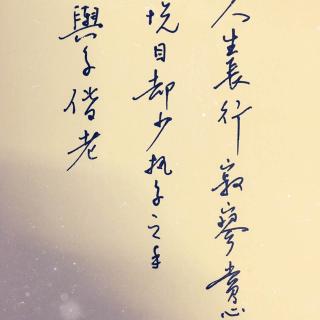 人生長行寂寥赏心
悦目却少执子之手
與子偕老